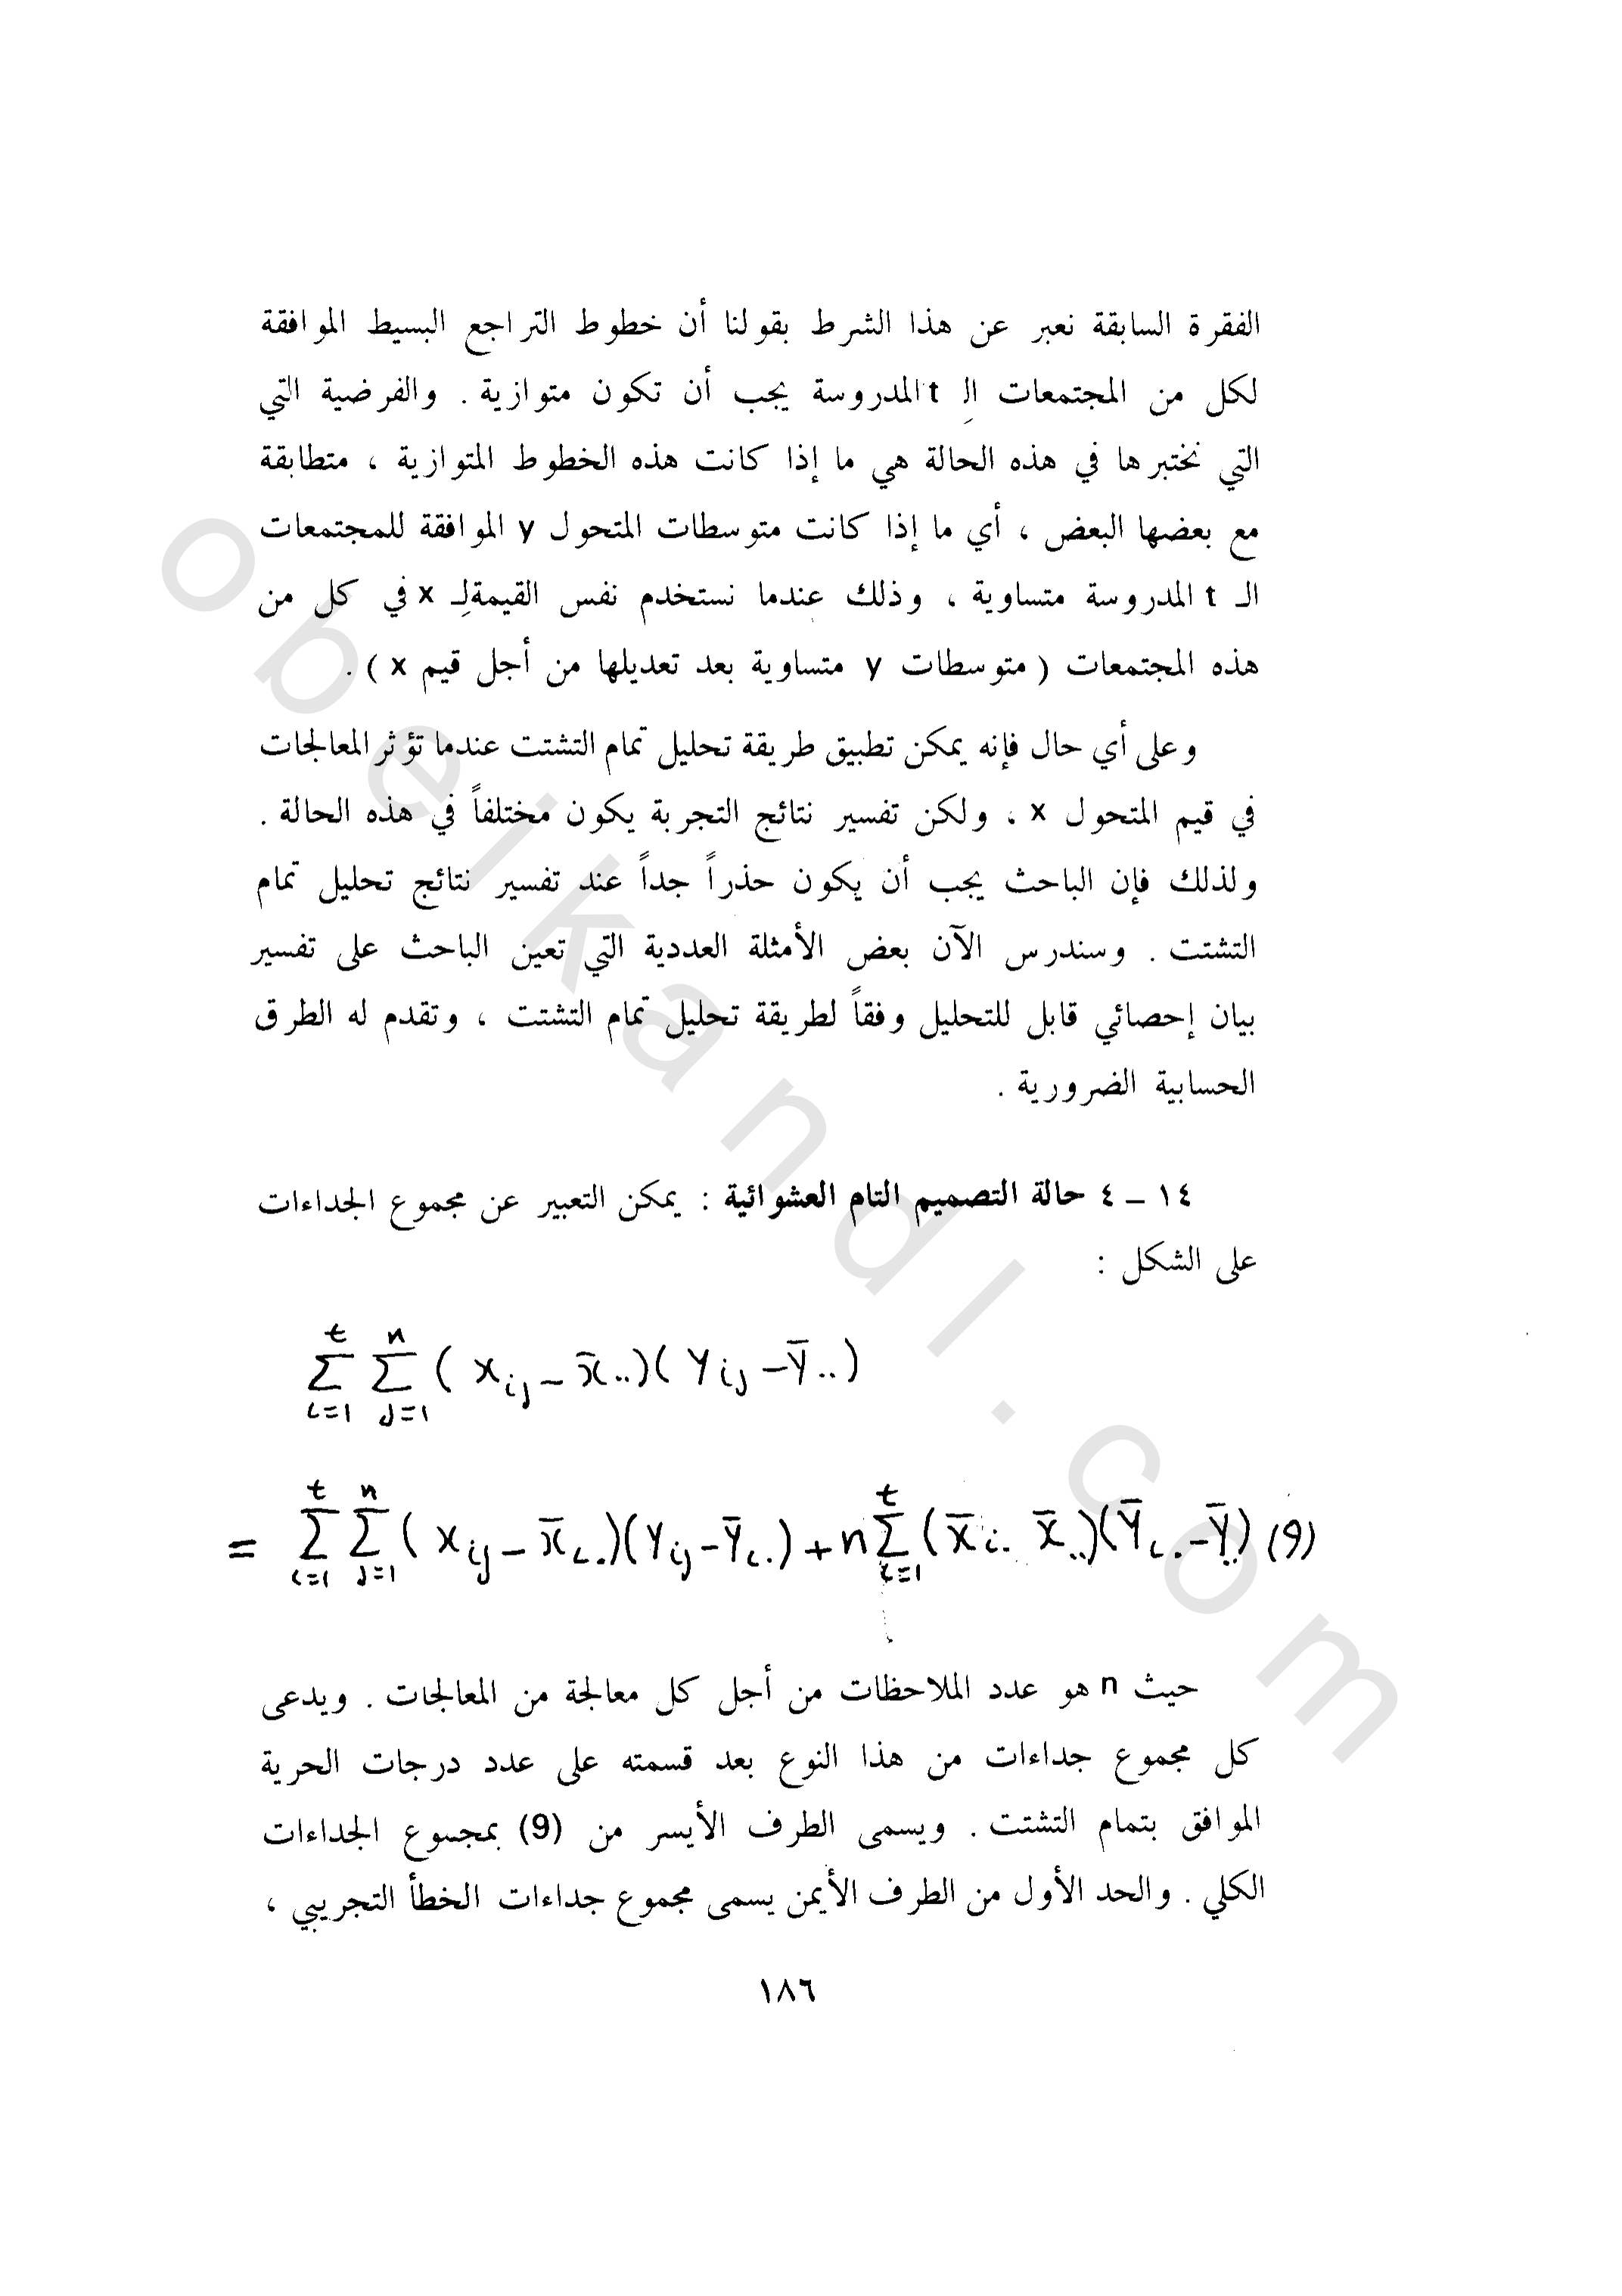 الفقرة السابقة نعبر عن هذا الشرط بقولنا أن خطوط التراجع البسيط الموافقة
لكل من المجتمعات الـ t المدروسة يجب أن تكون متوازية . والفرضية التي
التي نختبرها في هذه الحالة هي ما إذا كانت هذه الخطوط المتوازية ، متطابقة
مع بعضها البعض ، أي ما إذا كانت متوسطات المتحول y الموافقة للمجتمعات
الـ t المدروسة متساوية ، وذلك عندما نستخدم نفس القيمة لِـ x في كل من
هذه المجتمعات ( متوسطات y متساوية بعد تعديلها من أجل قيم x ) .
وعلى أي حال فإنه يمكن تطبيق طريقة تحليل تمام التشتت عندما تؤثر المعالجات
في قيم المتحول x ، ولكن تفسير نتائج التجربة يكون مختلفاً في هذه الحالة .
ولذلك فإن الباحث يجب أن يكون حذراً جداً عند تفسير نتائج تحليل تمام
التشتت . وسندرس الآن بعض الأمثلة العددية التي تعين الباحث على تفسير
بيان إحصائي قابل للتحليل وفقاً لطريقة تحليل تمام التشتت ، وتقدم له الطرق
الحسابية الضرورية .
١٤ – ٤ حالة التصميم التام العشوائية : يمكن التعبير عن مجموع الجداءات
على الشكل :
t n
Σ Σ ( x_ij – x̄.. )( y_ij – ȳ.. )
i=1 j=1
t n t
= Σ Σ ( x_ij – x̄_i. )( y_ij – ȳ_i. ) + n Σ ( x̄_i. x̄.. )( ȳ_i. – ȳ.. ) (9)
i=1 j=1 i=1
حيث n هو عدد الملاحظات من أجل كل معالجة من المعالجات . ويدعى
كل مجموع جداءات من هذا النوع بعد قسمته على عدد درجات الحرية
الموافق بتمام التشتت . ويسمى الطرف الأيسر من (9) بمجموع الجداءات
الكلي . والحد الأول من الطرف الأيمن يسمى مجموع جداءات الخطأ التجريبي ،
١٨٦
obeikandl.com